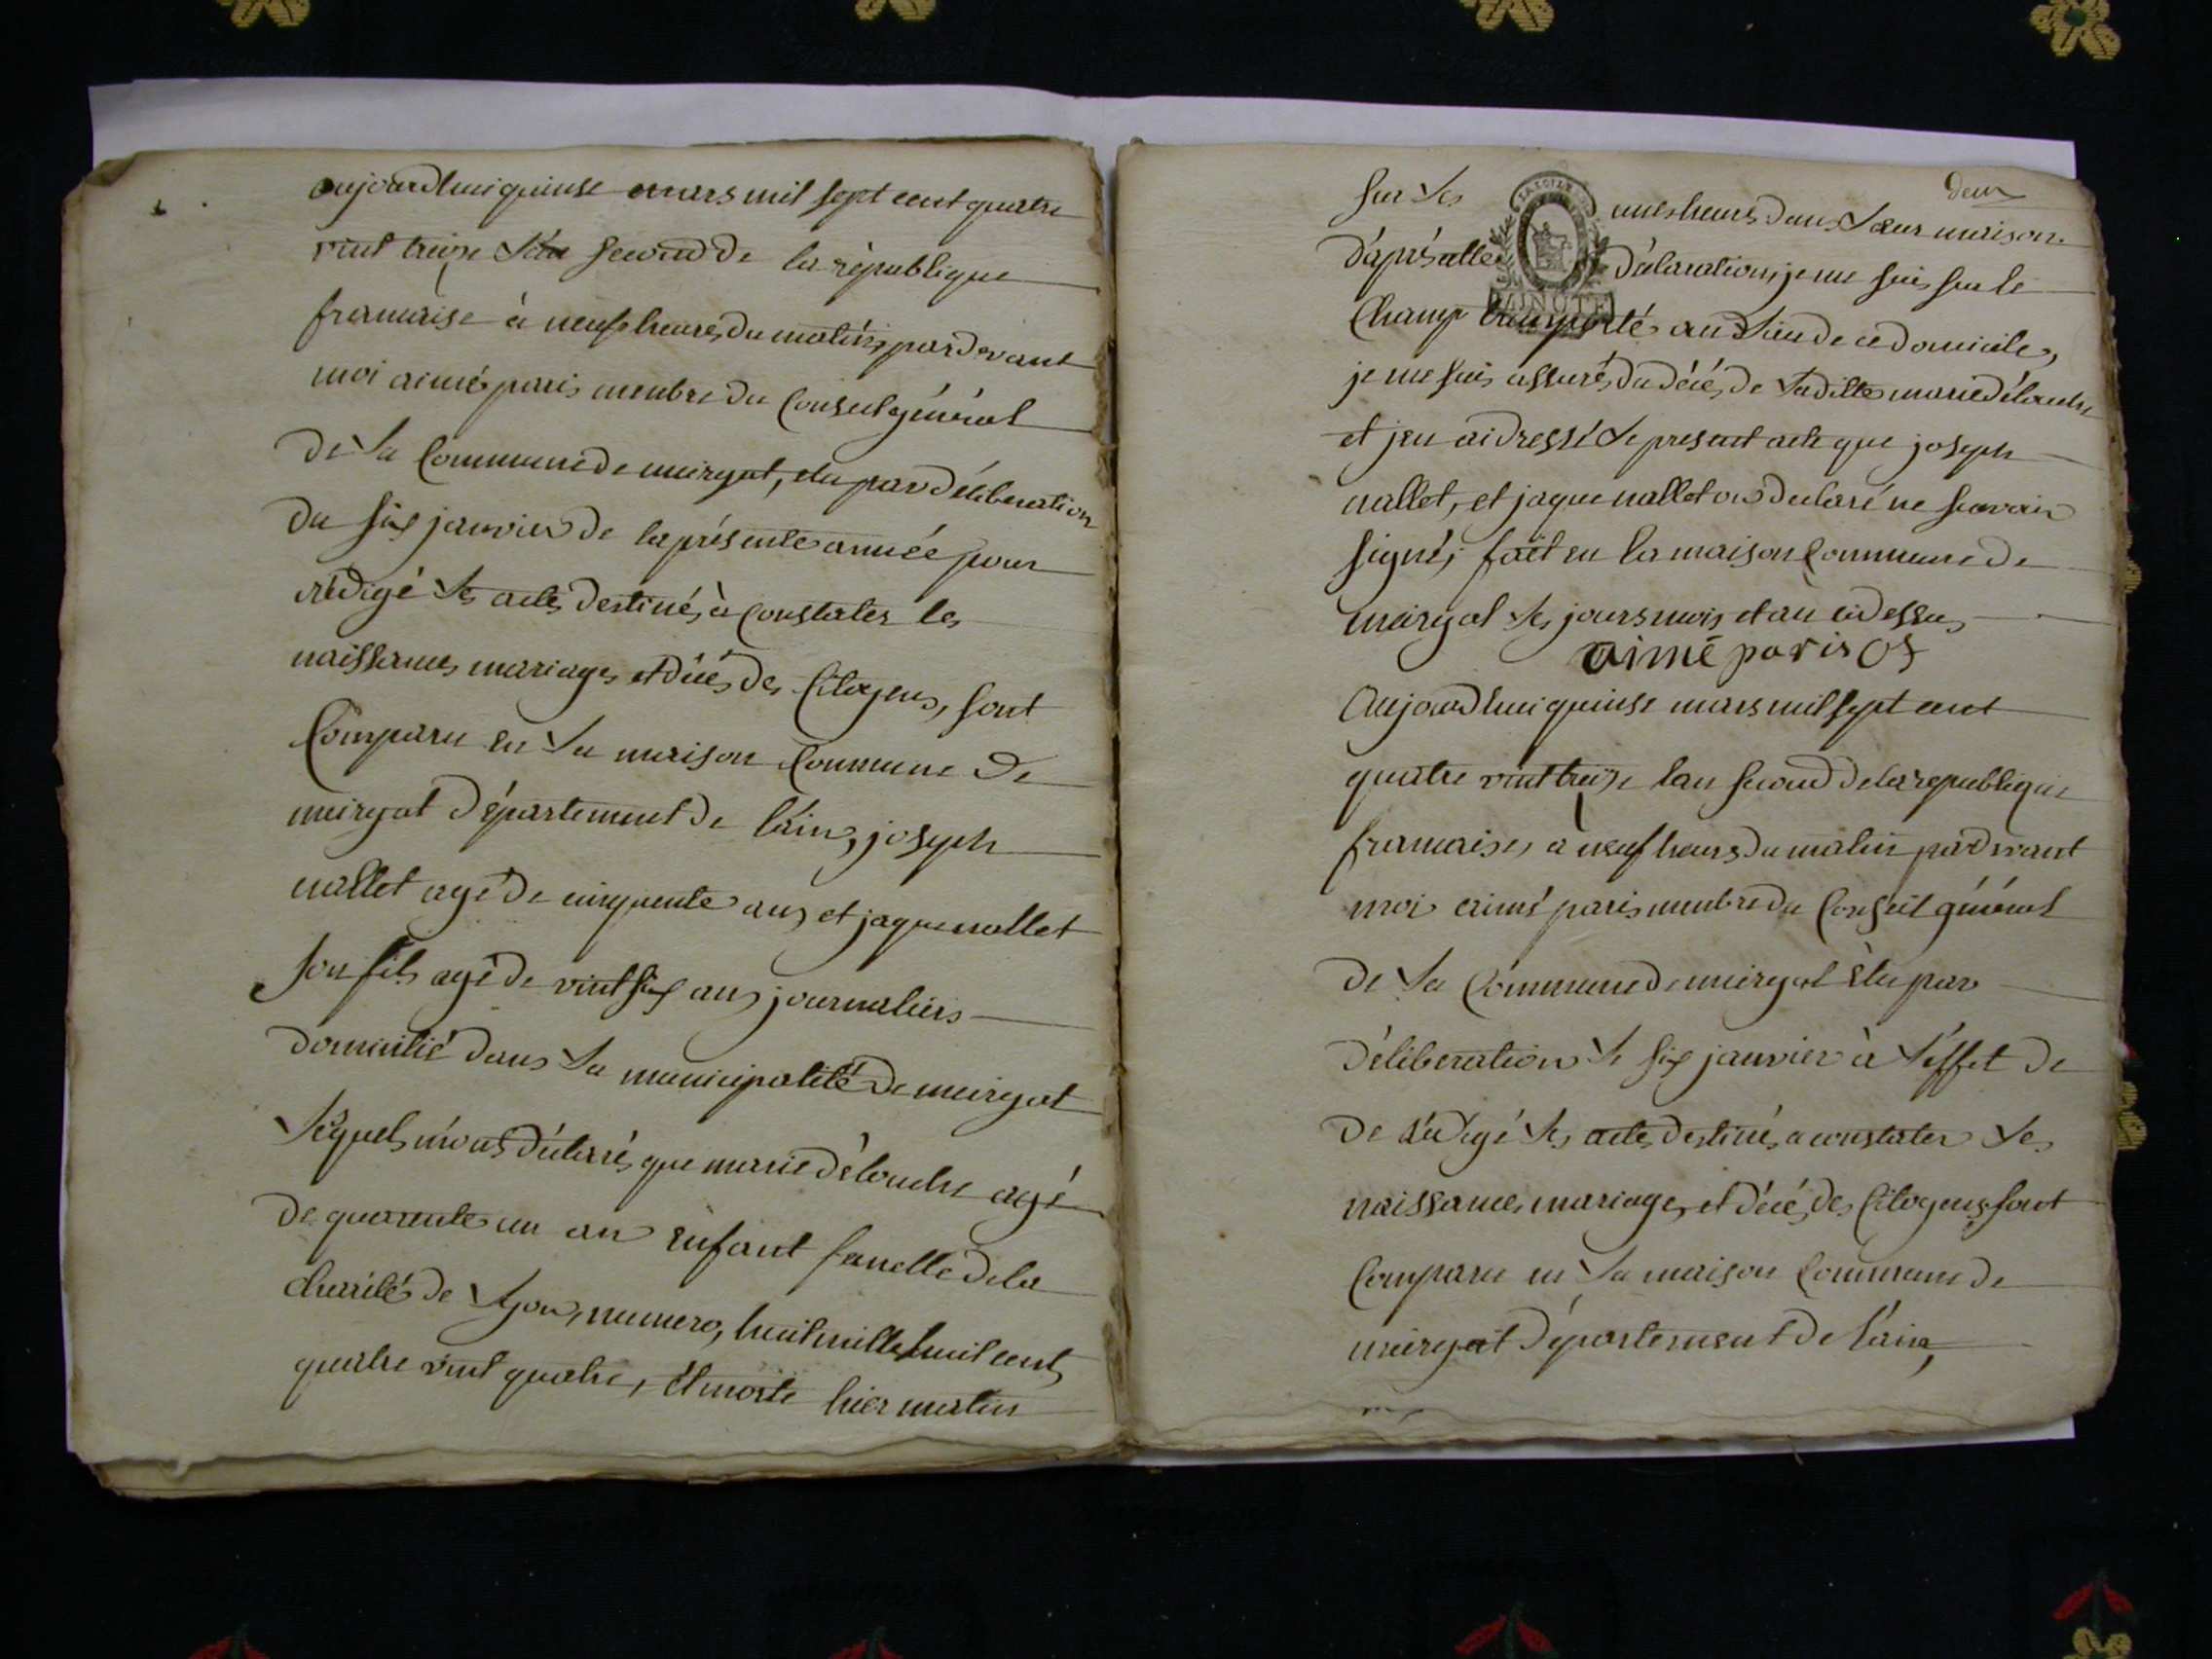 aujourdhuiquinse mars mil sept cent quatre
vint treize l'an second de la république
francaise à neuf heures du matin, pardevant
moi aimé paris membre du Conseil général
de la Commune de meiryat, élu par délibération
du six janvier de la présente année pour
rédigé les actes destinés à Constater les
naissances mariages et décés des Citoyens, sont
Comparu en la maison Commune de
meiryat département de l'ain, joseph
nallet agé de cinquente ans et jaque nallet
son fils agé de vint six ans journaliers
domicilié dans la municipalité de meiryat
lesquels m'ont déclaré que marie délouche agé
de quarente un an enfant femelle de la
charité de Lyon, numero, huit mille huit cent
quatre vint quatre, et morte hier matin
deux
sur les heures dans leur maison.
d'après cette déclaration, je me suis sur le
Champ transporté au lieu de ce domicile,
je me suis assuré du décés de laditte marie délouche
et jen ai dressé le present acte que joseph
nallet, et jaque nallet on declaré ne scavoir
signé, fait en la maison Commune de
meiryat les jours mois et an cidessus
MINUTE
aimé paris of
Aujourdhui quinse mars mil sept cent
quatre vint treize lan second de la republique
francaise, a neuf heures du matin pardevant
moi aimé paris membre du Conseil général
de la Commune de meiryat élu par
déliberation le six janvier à l'effet de
de rédigé les actes destinés a constater les
naissances mariages et décés des Citoyens, sont
Comparu en la maison Commune de
meiryat département de l'ain,